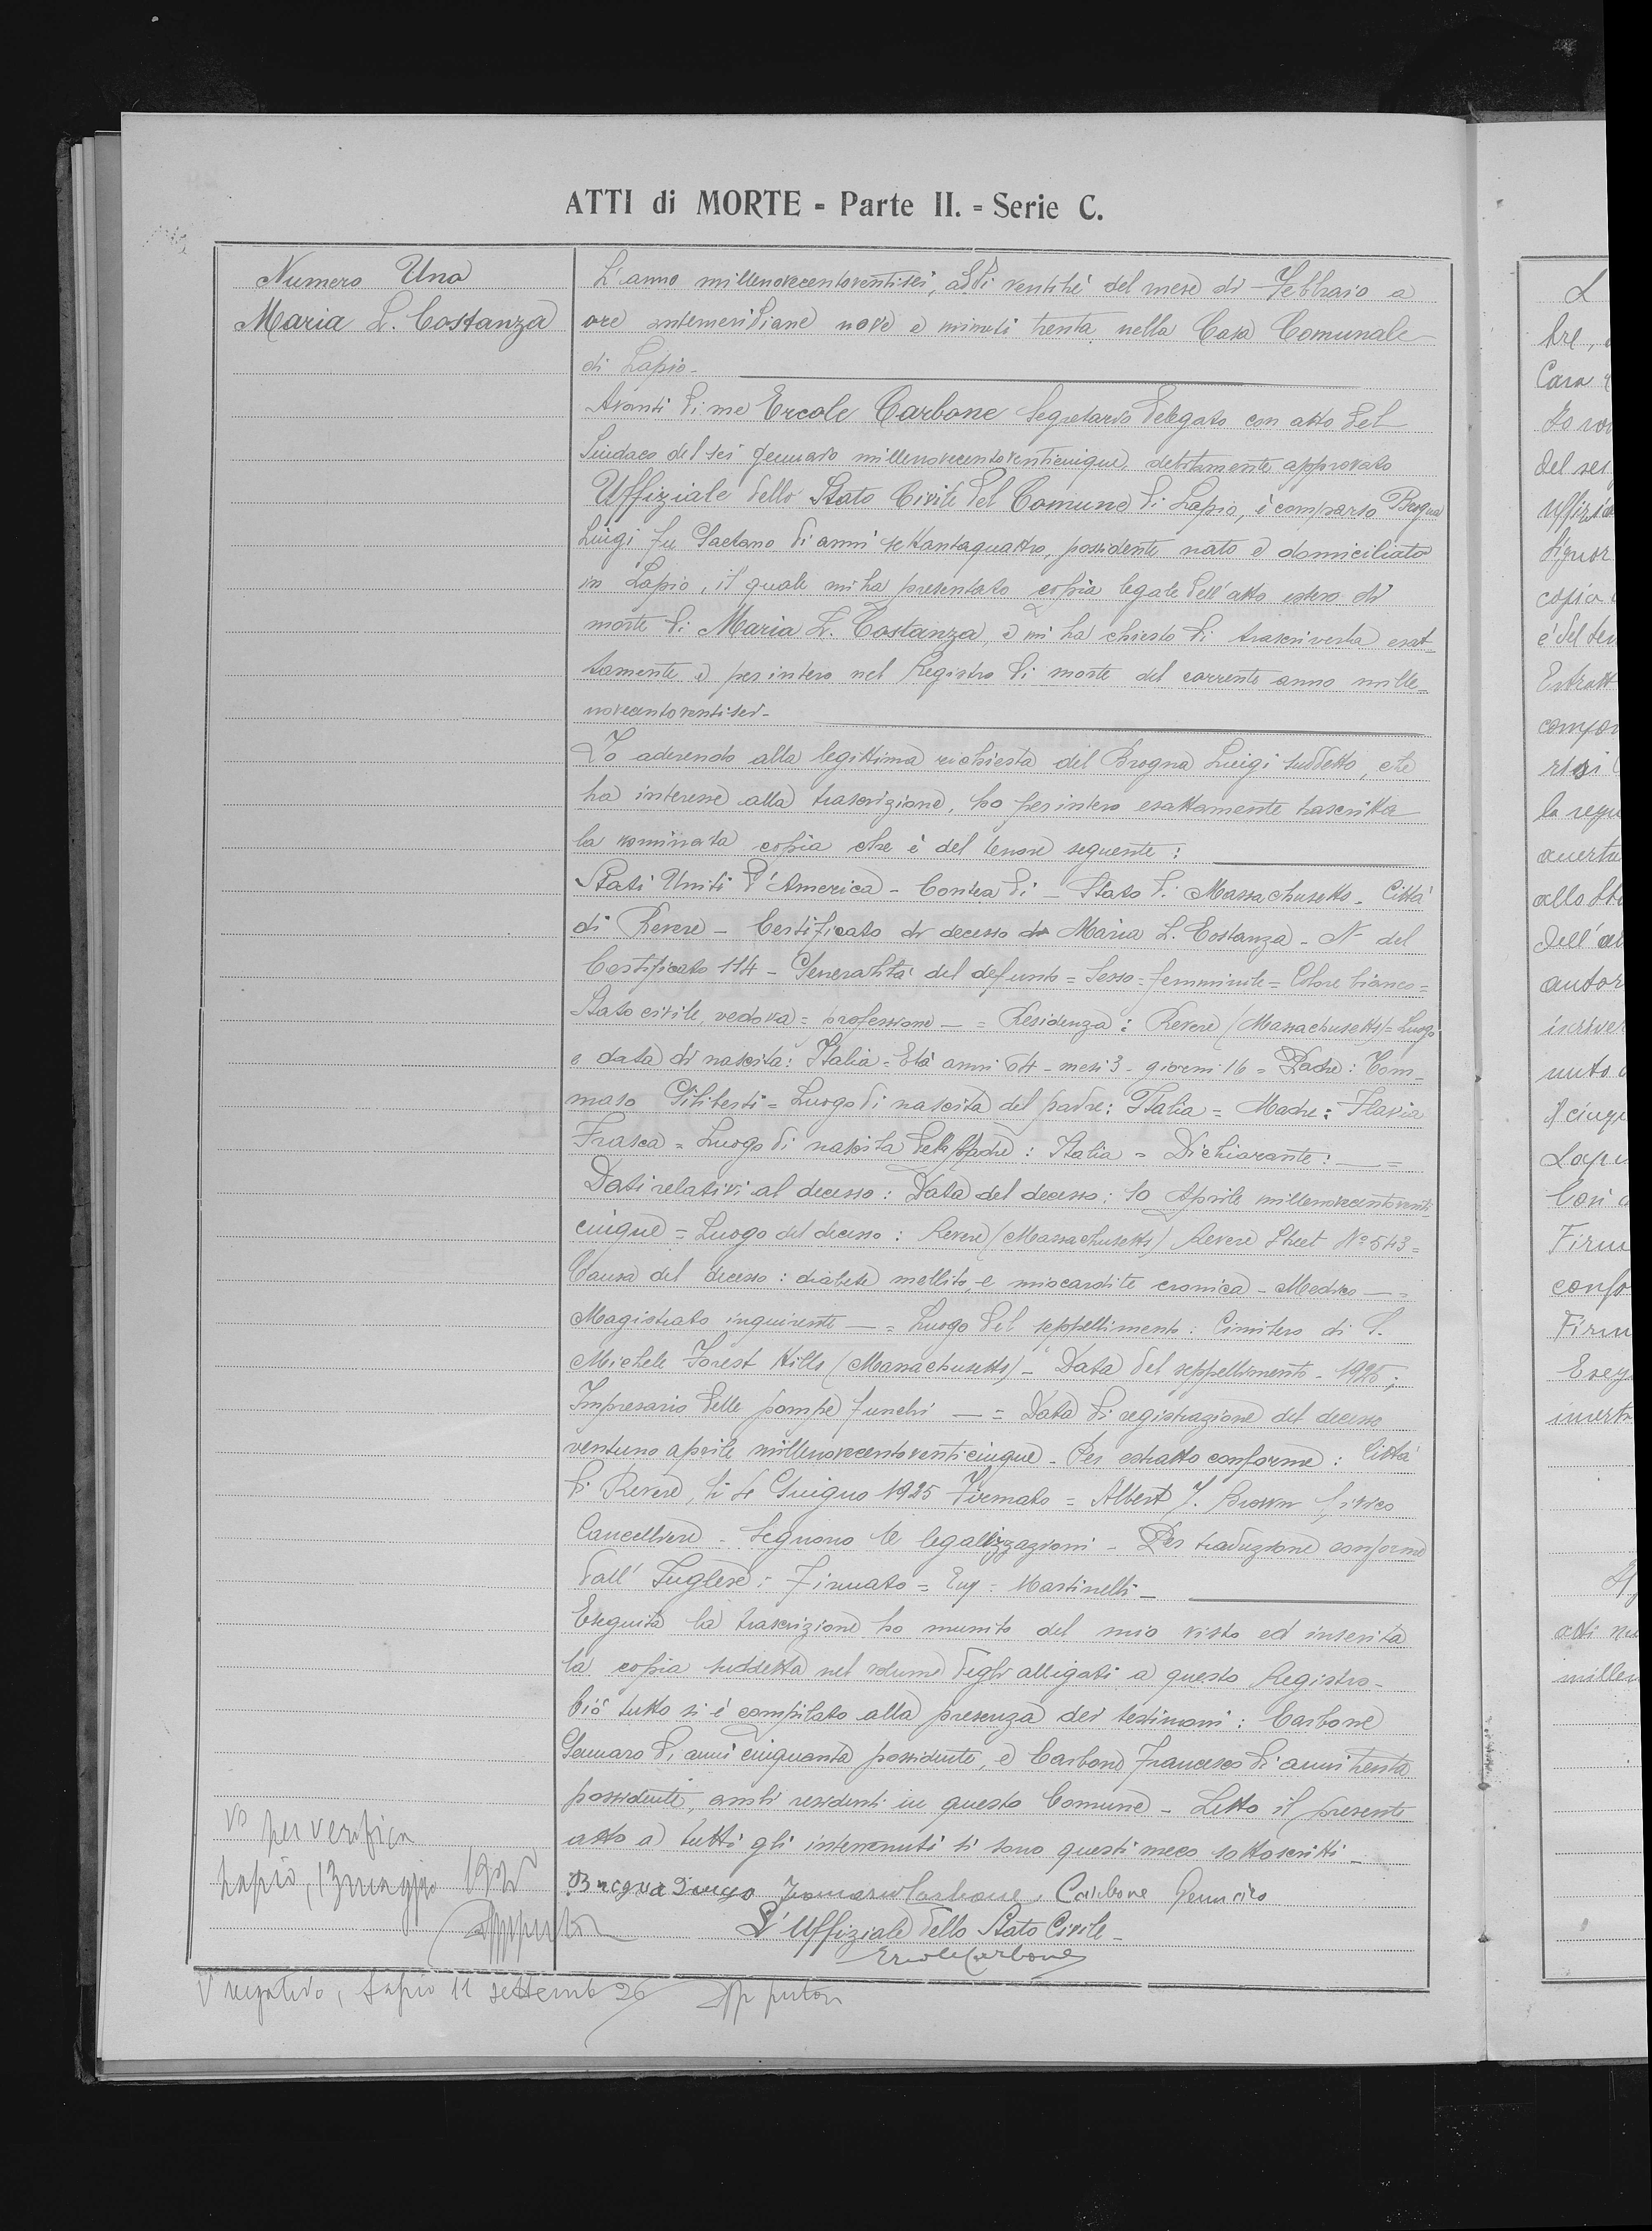 ATTI di MORTE - Parte II. = Serie C.
Numero Uno
Maria L. Costanza
L'anno millenovecentoventisei, addì ventitrè del mese di Febbraio a
ore antemeridiane nove e minuti trenta nella Casa Comunale
di Lapio -
Avanti di me Ercole Carbone Segretario delegato con atto del
Sindaco del sei gennaio millenovecentoventicinque, debitamente approvato
Uffiziale dello Stato Civile del Comune di Lapio, è comparso Brogna
Luigi fu Gaetano di anni settantaquattro, possidente nato e domiciliato
in Lapio, il quale mi ha presentato copia legale dell'atto estero di
morte di Maria L. Costanza, e mi ha chiesto di trascriverla esat-
tamente e per intero nel Registro di morte del corrente anno mille=
novecentoventisei -
Io aderendo alla legittima richiesta del Brogna Luigi suddetto, che
ha interesse alla trascrizione, ho per intero esattamente trascritta
la nominata copia che è del tenore seguente:
Stati Uniti d'America - Contea di - Stato di Massachusetts - Città
di Revere - Certificato di decesso di Maria L. Costanza - N° del
Certificato 114 - Generalità del defunto = Sesso = femminile = Colore bianco =
Stato civile, vedova = professione — = Residenza: Revere (Massachusetts) = Luogo
e data di nascita: Italia = Età anni 64 - mesi 3 - giorni 16 = Padre: Tom-
maso Giliberti = Luogo di nascita del padre: Italia = Madre: Flavia
Frasca = Luogo di nascita della Madre: Italia = Dichiarante: — =
Dati relativi al decesso: Data del decesso: 10 Aprile millenovecentoventi-
cinque = Luogo del decesso: Revere (Massachusetts) Revere Street N° 543 =
Causa del decesso: diabete mellito e miocardite cronica - Medico — =
Magistrato inquirente — = Luogo del seppellimento: Cimitero di S.
Michele Forest Hills (Massachusetts) - Data del seppellimento - 1925;
Impresario delle pompe funebri — = Data di registrazione del decesso
ventuno aprile millenovecentoventicinque - Per estratto conforme: Città
di Revere, li Giugno 1925 Firmato = Albert J. Brown Civico
Cancelliere - Seguono le legalizzazioni - Per traduzione conforme
dall' Inglese: Firmato = Eug = Martinelli -
Eseguita la trascrizione ho munito del mio visto ed inserita
la copia suddetta nel volume degli alligati a questo Registro -
Ciò tutto si è compilato alla presenza dei testimoni: Carbone
Gennaro di anni cinquanta possidente, e Carbone Francesco di anni trenta
possidente, ambi residenti in questo Comune - Letto il presente
atto a tutti gli intervenuti si sono questi meco sottoscritti -
Brogna Luigi Carbone Carbone Gennaro
L'Uffiziale dello Stato Civile -
Ercole Carbone
Vo per verifica
Lapio, 13 maggio
V negativo, Lapio 11 settemb 26